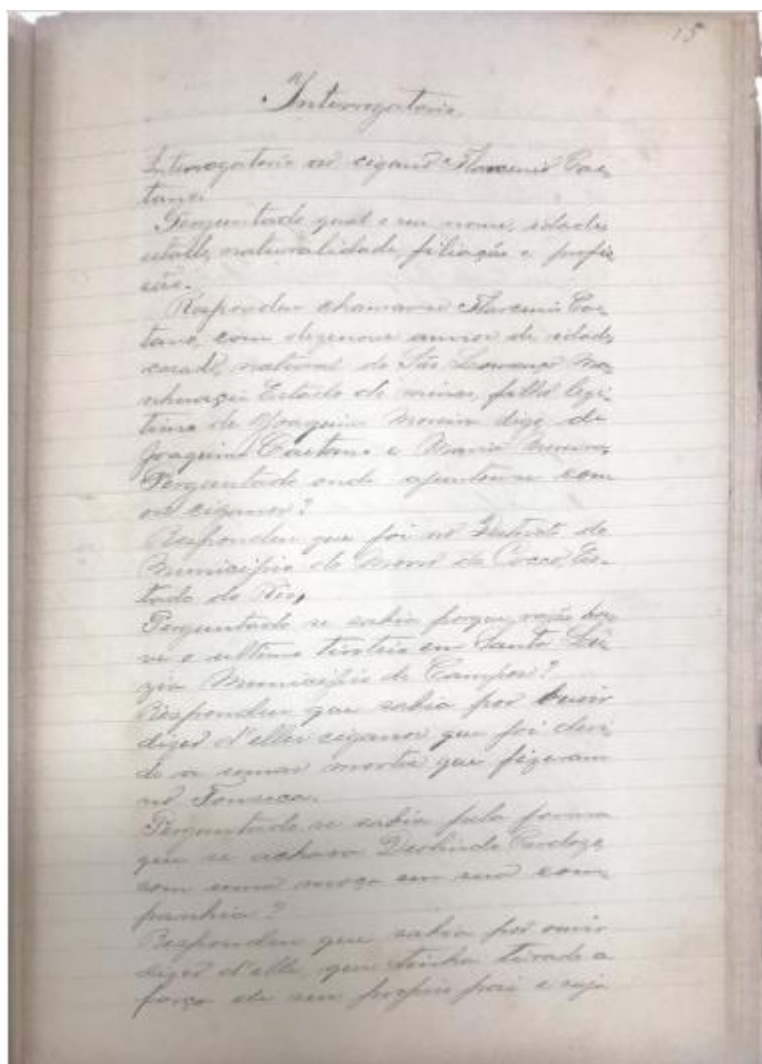 15
Interrogatorio
Interrogatorio ao cigano Florencio Cae
tano.
Perguntado qual o seu nome, idade,
estado, naturalidade, filiação e profis
são.
Respondeu chamar-se Florencio Cae
tano, com dezenove annos de idade,
casado, natural de São Lourenço Ma
nhuaçu Estado de Minas, filho legi
timo de Joaquim Moreira digo de
Joaquim Caetano e Maria Moreira.
Perguntado onde ajuntou-se com
os ciganos?
Respondeu que foi no Districto do
Municipio de Morro do Coco, Es
tado do Rio,
Perguntado se sabia porque razão hou
ve o ultimo tiroteio em Santa Lu
zia Municipio de Campos?
Respondeu que sabia por ouvir
dizer d'elles ciganos que foi
de umas mortes que fizeram
no Fonseca.
Perguntado se sabia pela forma
que se achava Deolindo Cardozo,
com uma moça em sua com
panhia?
Respondeu que sabia por ouvir
dizer d'elle, que tinha tirado a
força de seu proprio pai e